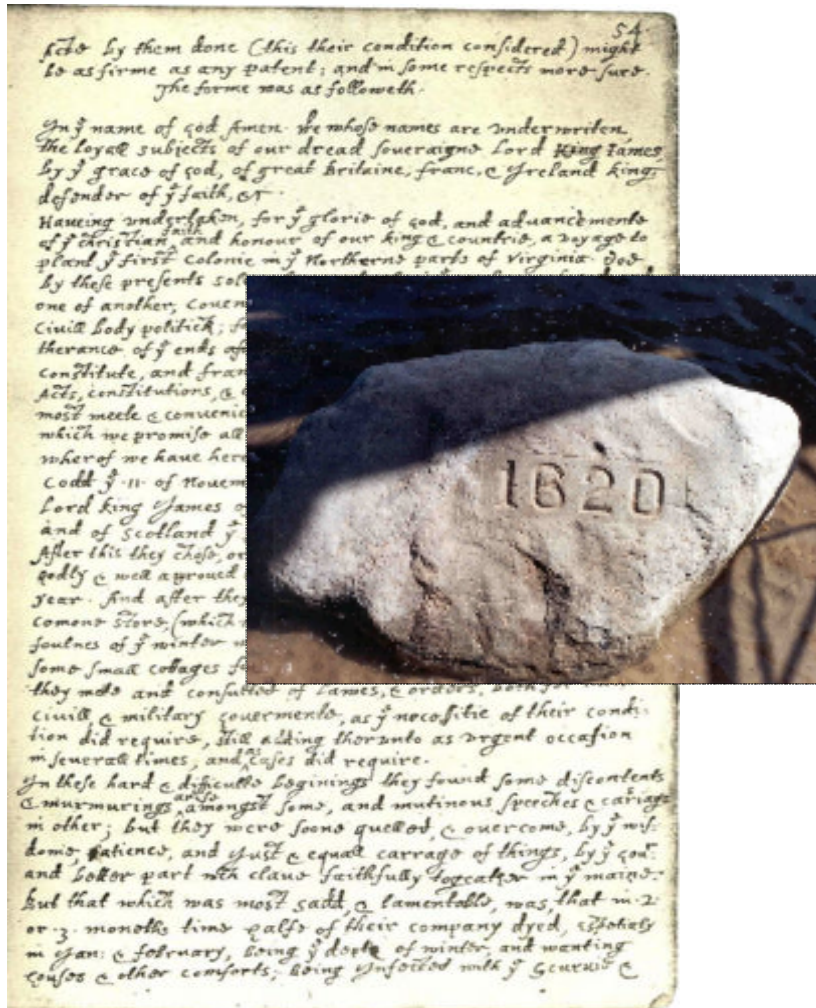 54
Acts by them done (this their condition considered) might
be as firme as any patent; and in some respects more sure.
The forme was as followeth.
In yͤ name of god Amen. We whose names are underwriten,
the loyall subjects of our dread soveraigne Lord King James
by yͤ grace of god, of great Britaine, franc, & Ireland king,
defender of yͤ faith, &c
Haveing undertaken, for yͤ glorie of god, and advancemente
of yͤ christian faith and honour of our king & countrie, a voyage to
plant yͤ first colonie in yͤ Northerne parts of Virginia. Doe
by these presents
one of another,
Civill body politick;
therance of yͤ ends
constitute, and
Acts, constitutions, &
most meete &
which we promise all
wherof we have
Codd yͤ .11. of
Lord king James
and of Scotland yͤ
After this they chose, or
godly & well aproved
year. And after they
comone store, (which
foulnes of yͤ winter
some small cottages
1620
they mete and consulted of lawes, & orders, both for
civill & military govermente, as yͤ necessitie of their condi-
tion did require, still adding therunto as urgent occasion
in severall times, and as cases did require.
In these hard & difficulte beginings they found some discontents
& murmurings arise amongst some, and mutinous speeches & cariags
in other; but they were soone quelled, & overcome, by yͤ wis-
dome, patience, and just & equall carrage of things, by yͤ Govͬ
and better part wch clave faithfully togeather in yͤ maine.
But that which was most sadd, & lamentable, was, that in .2.
or .3. moneths time halfe of their company dyed, espetialy
in Jan: & february, being yͤ depth of winter, and wanting
houses & other comforts; being Infected with yͤ Scurvie &